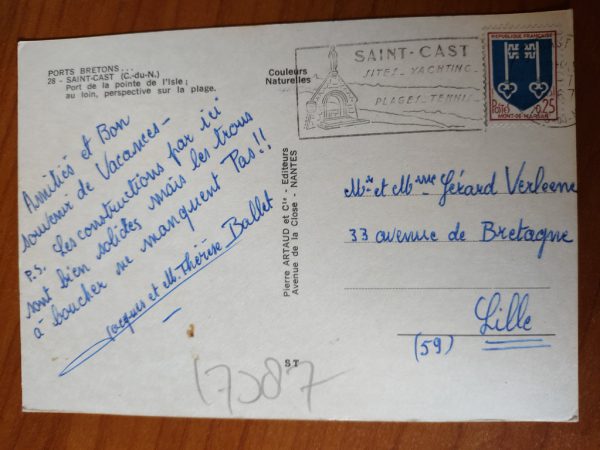 PORTS BRETONS...
28 - SAINT-CAST (C.-du-N.)
Port de la pointe de l'Isle ;
au loin, perspective sur la plage.
Couleurs
Naturelles
Amitiés et Bon
souvenir de Vacances-
P.S. Les constructions par ici
sont bien solides mais les trous
à boucher ne manquent Pas!!
Jacques et M. Thérèse Ballet
Pierre ARTAUD et Cie - Editeurs
Avenue de la Close - NANTES
ST
17087
SAINT-CAST
SITES - YACHTING -
PLAGES - TENNIS
REPUBLIQUE FRANÇAISE
POSTES 0,25
MONT-DE-MARSAN
Mr et Mme Gérard Verleene
33 avenue de Bretagne
Lille
(59)